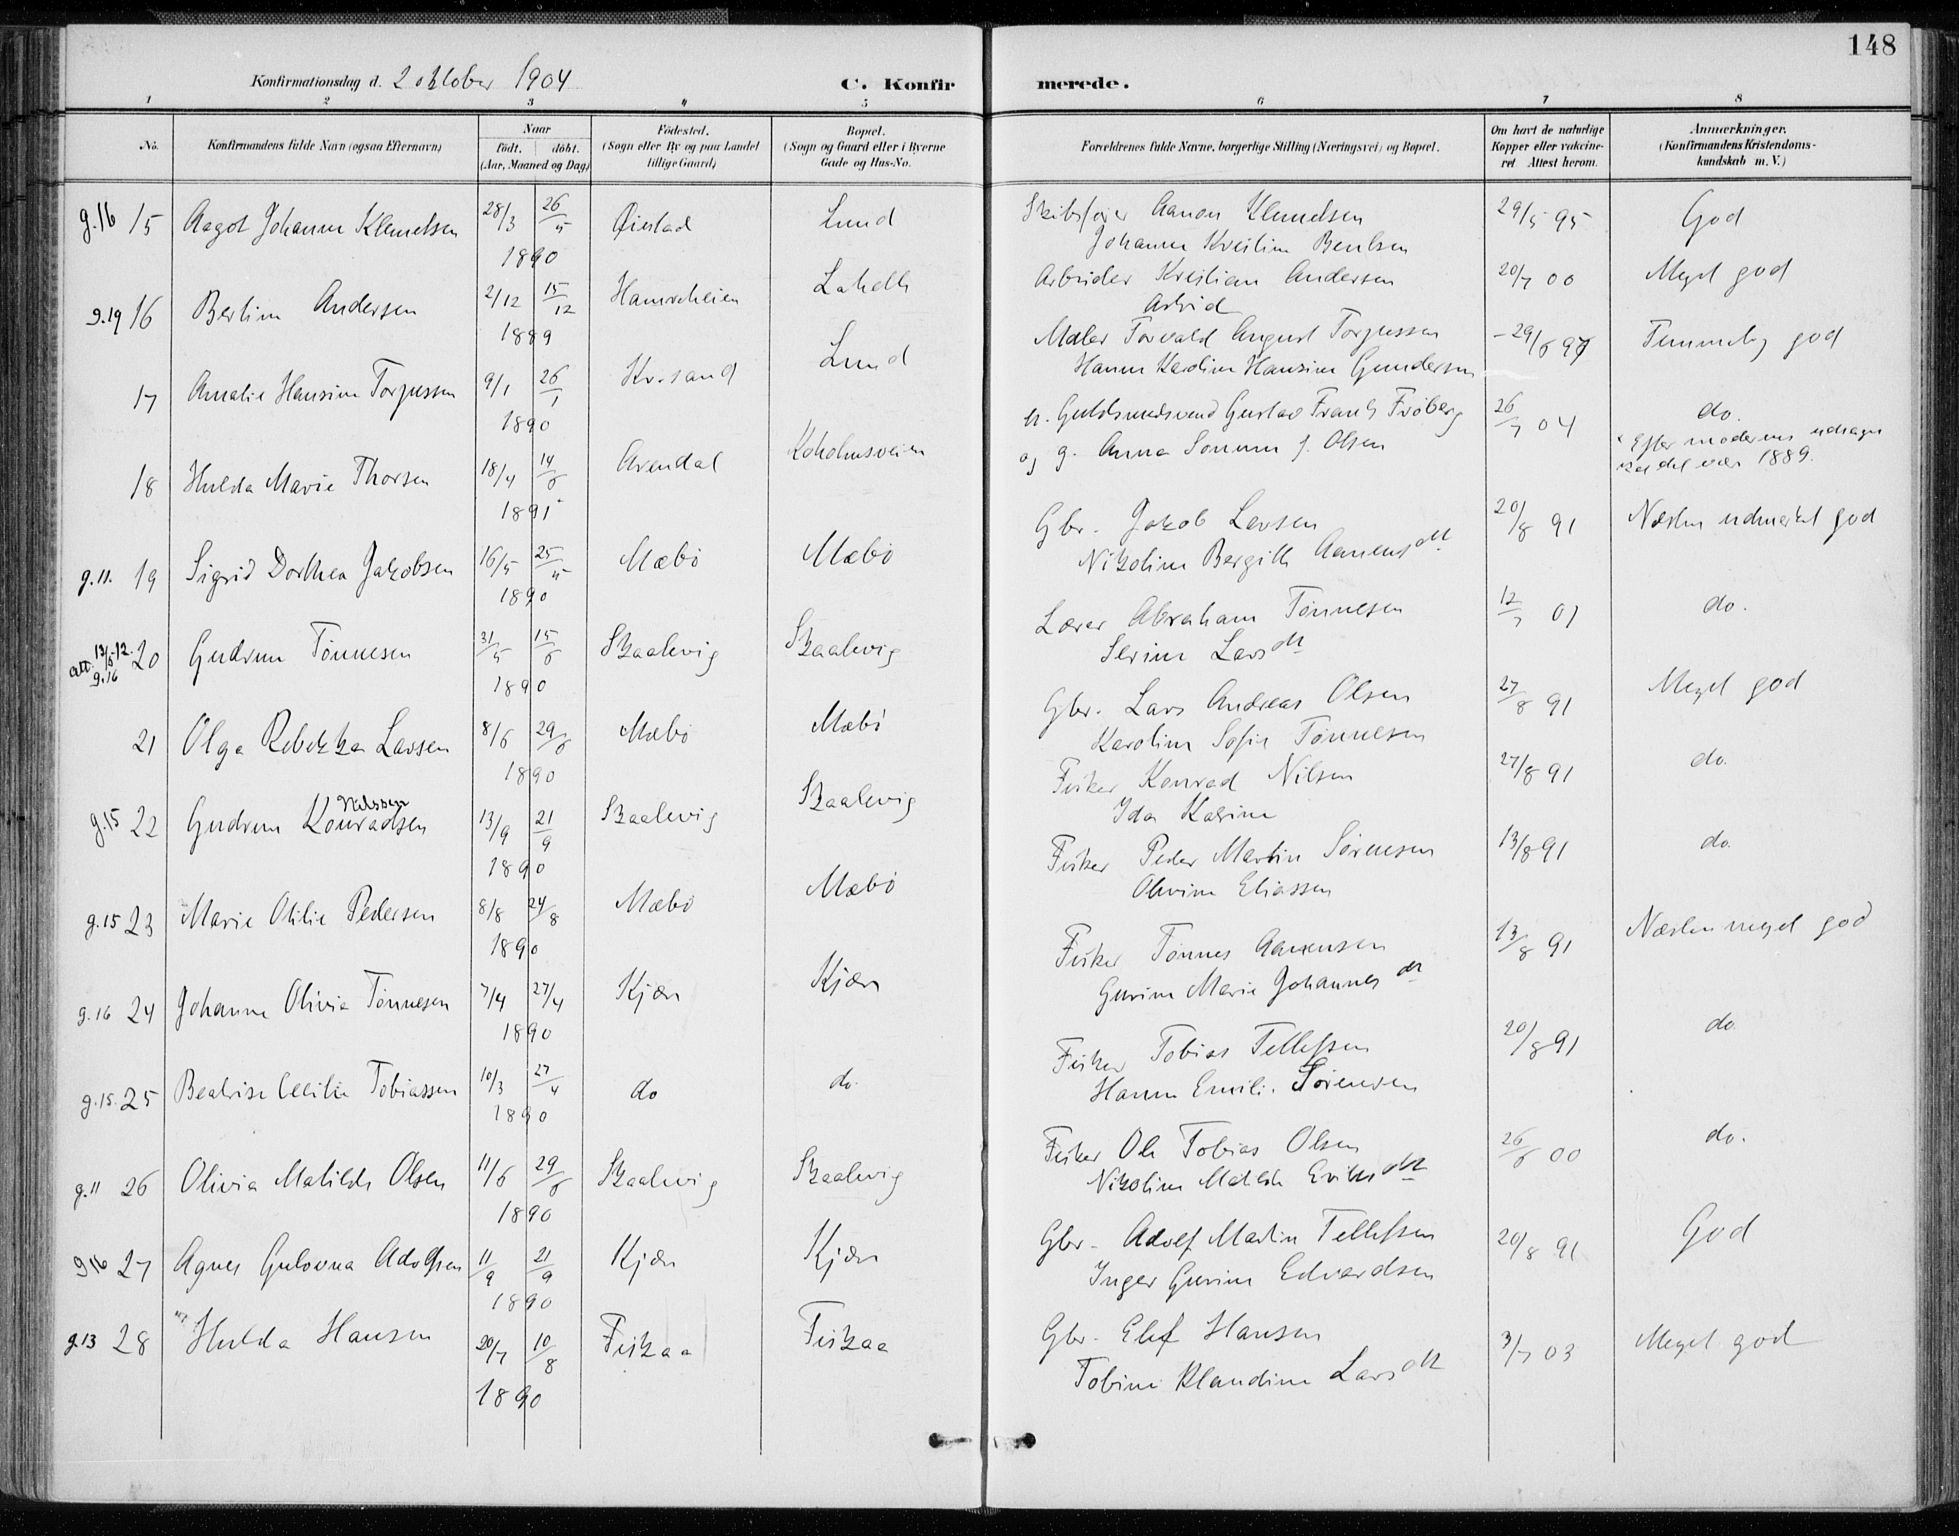 148
Konfirmationsdag d. 2 oktober 1904
C. Konfirmerede.
1 2 3 4 5 6 7 8
No.
Konfirmandens fulde Navn (ogsaa Efternavn)
Naar
født. døbt.
(Aar, Maaned og Dag)
Fødested.
(Sogn eller By og paa Landet
tillige Gaard)
Bopæl.
(Sogn og Gaard eller i Byerne
Gade og Hus-No.
Forældrenes fulde Navne, borgerlige Stilling (Næringsvei) og Bopæl.
Om havt de naturlige
Kopper eller vakcine-
ret Attest herom.
Anmærkninger.
(Konfirmandens Kristendoms-
kundskab m. V.)
g.16 15 Aagot Johanne Klemetsen 28/3 26/5 Øiestad Lund Aanon Klemetsen 29/5 95 God
1890 Johanne Kristine Bentsen
g.19 16 Bertine Andersen 2/12 15/12 Hamreheien Arbeider Kristian Andersen 20/7 00 Meget god
1889 Astrid
17 Amalie Hansine Torjussen 9/1 26/1 Kr.sand Lund Maler Torvald August Torjussen - 29/6 97 Temmelig god
1890 Hanne Karoline Hansine Gundersen
18 Hulda Marie Thorsen 18/4 14/6 Arendal Kokholmsveien Guldsmedsvend Gustav Frants Frøberg 26/7 04 do.
1891 og g. Anna f. Olsen
* Efter moderens udsagn
skal det være 1889.
g.11. 19 Sigrid Dorthea Jakobsen 16/5 25/5 Mæbø Mæbø Gbr. Jakob Larsen 20/8 91 Næsten udmerket god
1890 Nikoline Bergitte Aanensdtt
att. 13/6-12. g.16 20 Gudrun Tønnesen 31/5 15/6 Skaalevig Skaalevig Lærer Abraham Tønnesen 12/7 01 do.
1890 Serine Larsdtt
21 Olga Rebekka Larsen 8/6 29/6 Mæbø Mæbø Gbr. Lars Andreas Olsen 27/8 91 Meget god
1890 Karoline Sofie Tønnesen
Nilssen
g.15 22 Gudrun Konradsen 13/9 21/9 Skaalevig Skaalevig Fisker Konrad Nilsen 27/8 91 do.
1890 Ida Karine
g.15 23 Marie Otilie Pedersen 8/8 24/8 Mæbø Mæbø Fisker Peder Martin Sørensen 13/8 91 do.
1890 Olivine Eliassen
g.16 24 Johanne Olivia Tønnesen 7/4 27/4 Kjær Kjær Fisker Tønnes Aanensen 13/8 91 Næsten meget god
1890 Gurine Marie Johannesdtt
g.15. 25 Beatrise Cecilie Tobiassen 10/3 27/4 do do. Fisker Tobias Tellefsen 20/8 91 do.
1890 Hanne Emilie Sørensen
g.11 26 Olivia Matilde Olsen 11/6 29/6 Skaalevig Skaalevig Fisker Ole Tobias Olsen 26/6 00 do.
1890 Nikoline Matilde Eriksdtt
g16 27 Agnes Gulovna Adolfsen 11/9 21/9 Kjær Kjær Gbr. Adolf Martin Tellefsen 20/8 91 God
1890 Inger Gurine Edvardsen
g.13 28 Hulda Hansen 20/7 10/8 Fiskaa Fiskaa Gbr. Elef Hansen 3/7 03 Meget god
1890 Tobine Klaudine Larsdtt